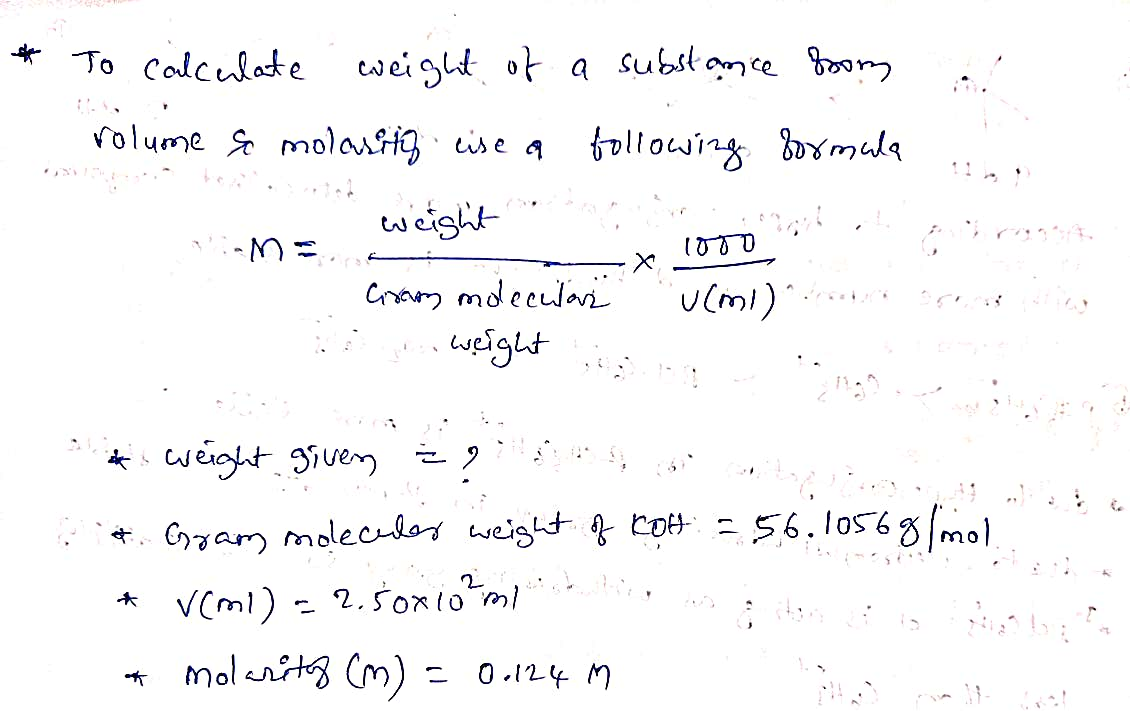 * To calculate weight of a substance from
volume & molarity use a following formula
M = weight / Gram molecular weight × 1000 / V(ml)
* weight given = ?
* Gram molecular weight of KOH = 56.1056 g/mol
* V(ml) = 2.50x10² ml
* Molarity (M) = 0.124 M